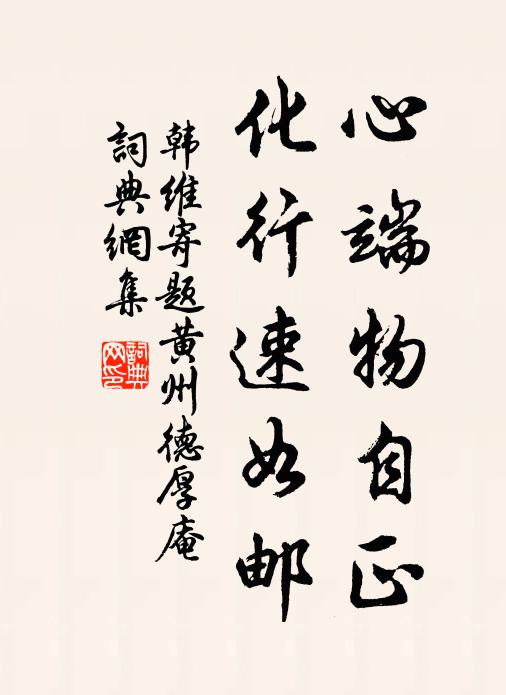 心端物自正
化行速如邮
韩维寄题黄州德厚庵
詞典網集
詞典
网印